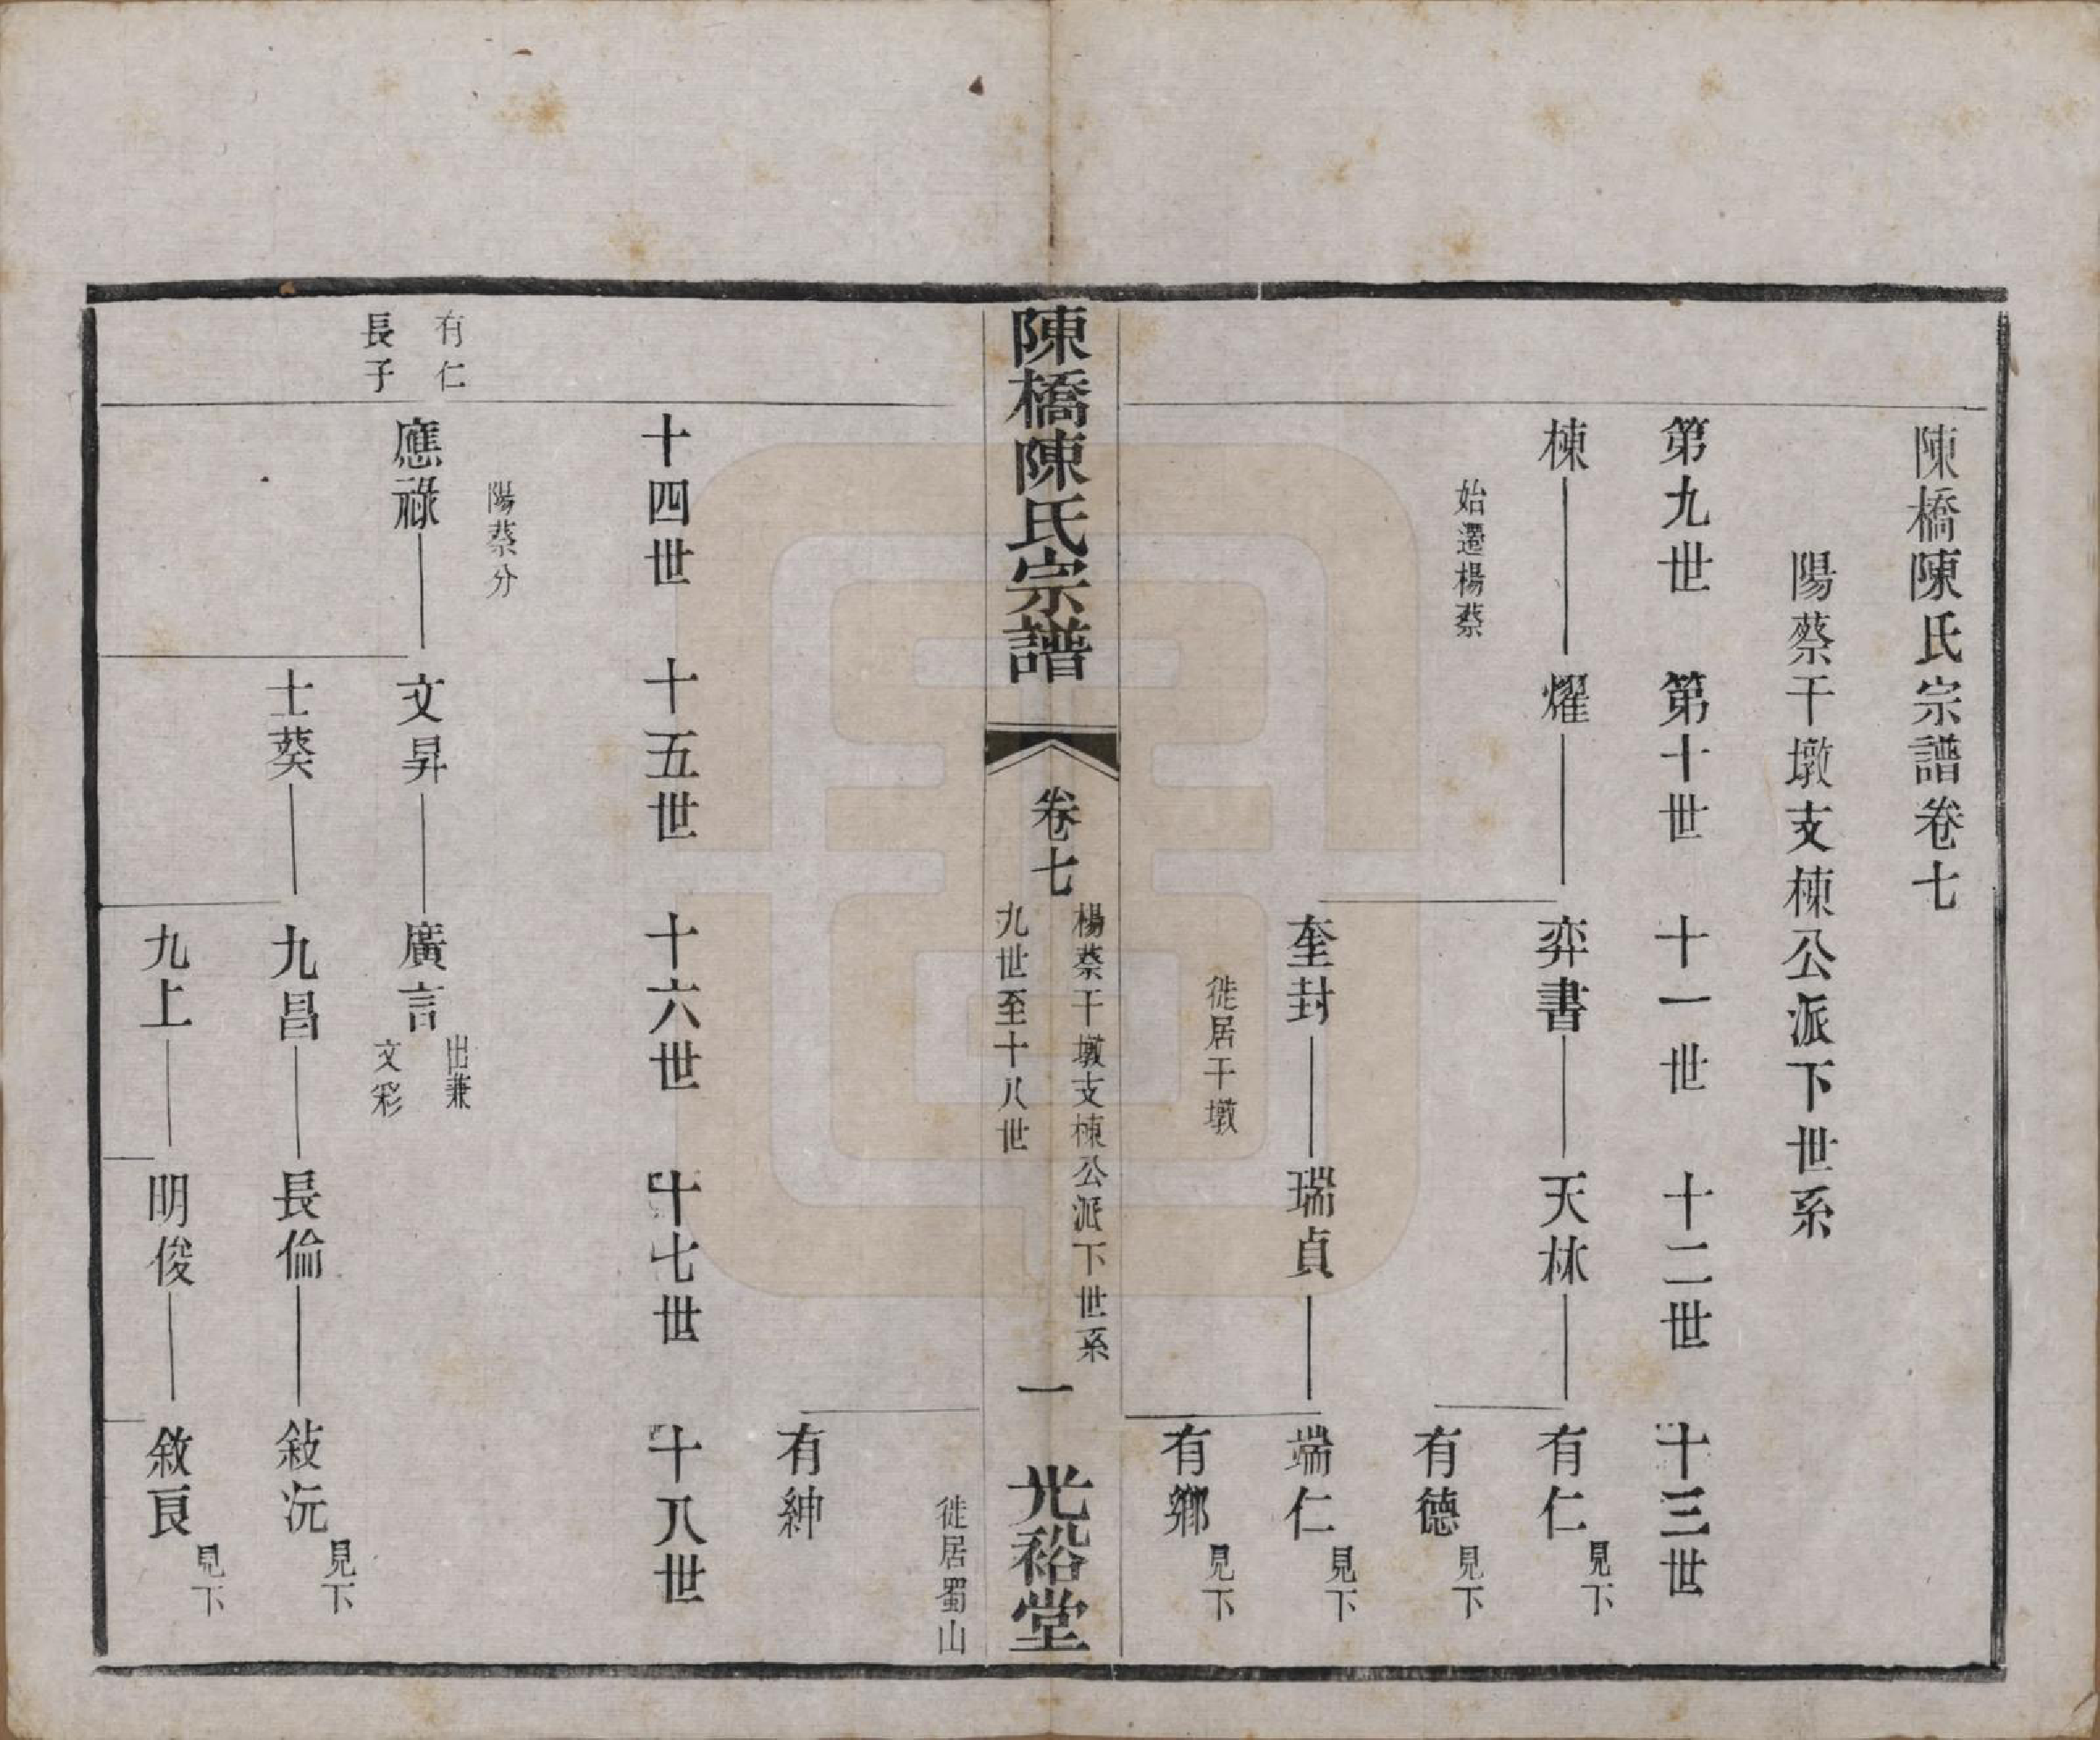 陳橋陳氏宗譜卷七
陽蔡干墩支棟公派下世系
第九世 第十世 十一世 十二世 十三世
棟 燿 弈書 天林 有仁 見下
始遷楊蔡
有德 見下
奎封 瑞貞 端仁 見下
徙居干墩
有鄉 見下
陳橋陳氏宗譜 卷七 楊蔡干墩支棟公派下世系 九世至十八世 一 光裕堂
徙居蜀山
有紳
十四世 十五世 十六世 十七世 十八世
陽蔡分
有仁
長子
應祿 文昇 廣言 出兼 文彩
士葵 九昌 長倫 敍沅 見下
九上 明俊 敘良 見下